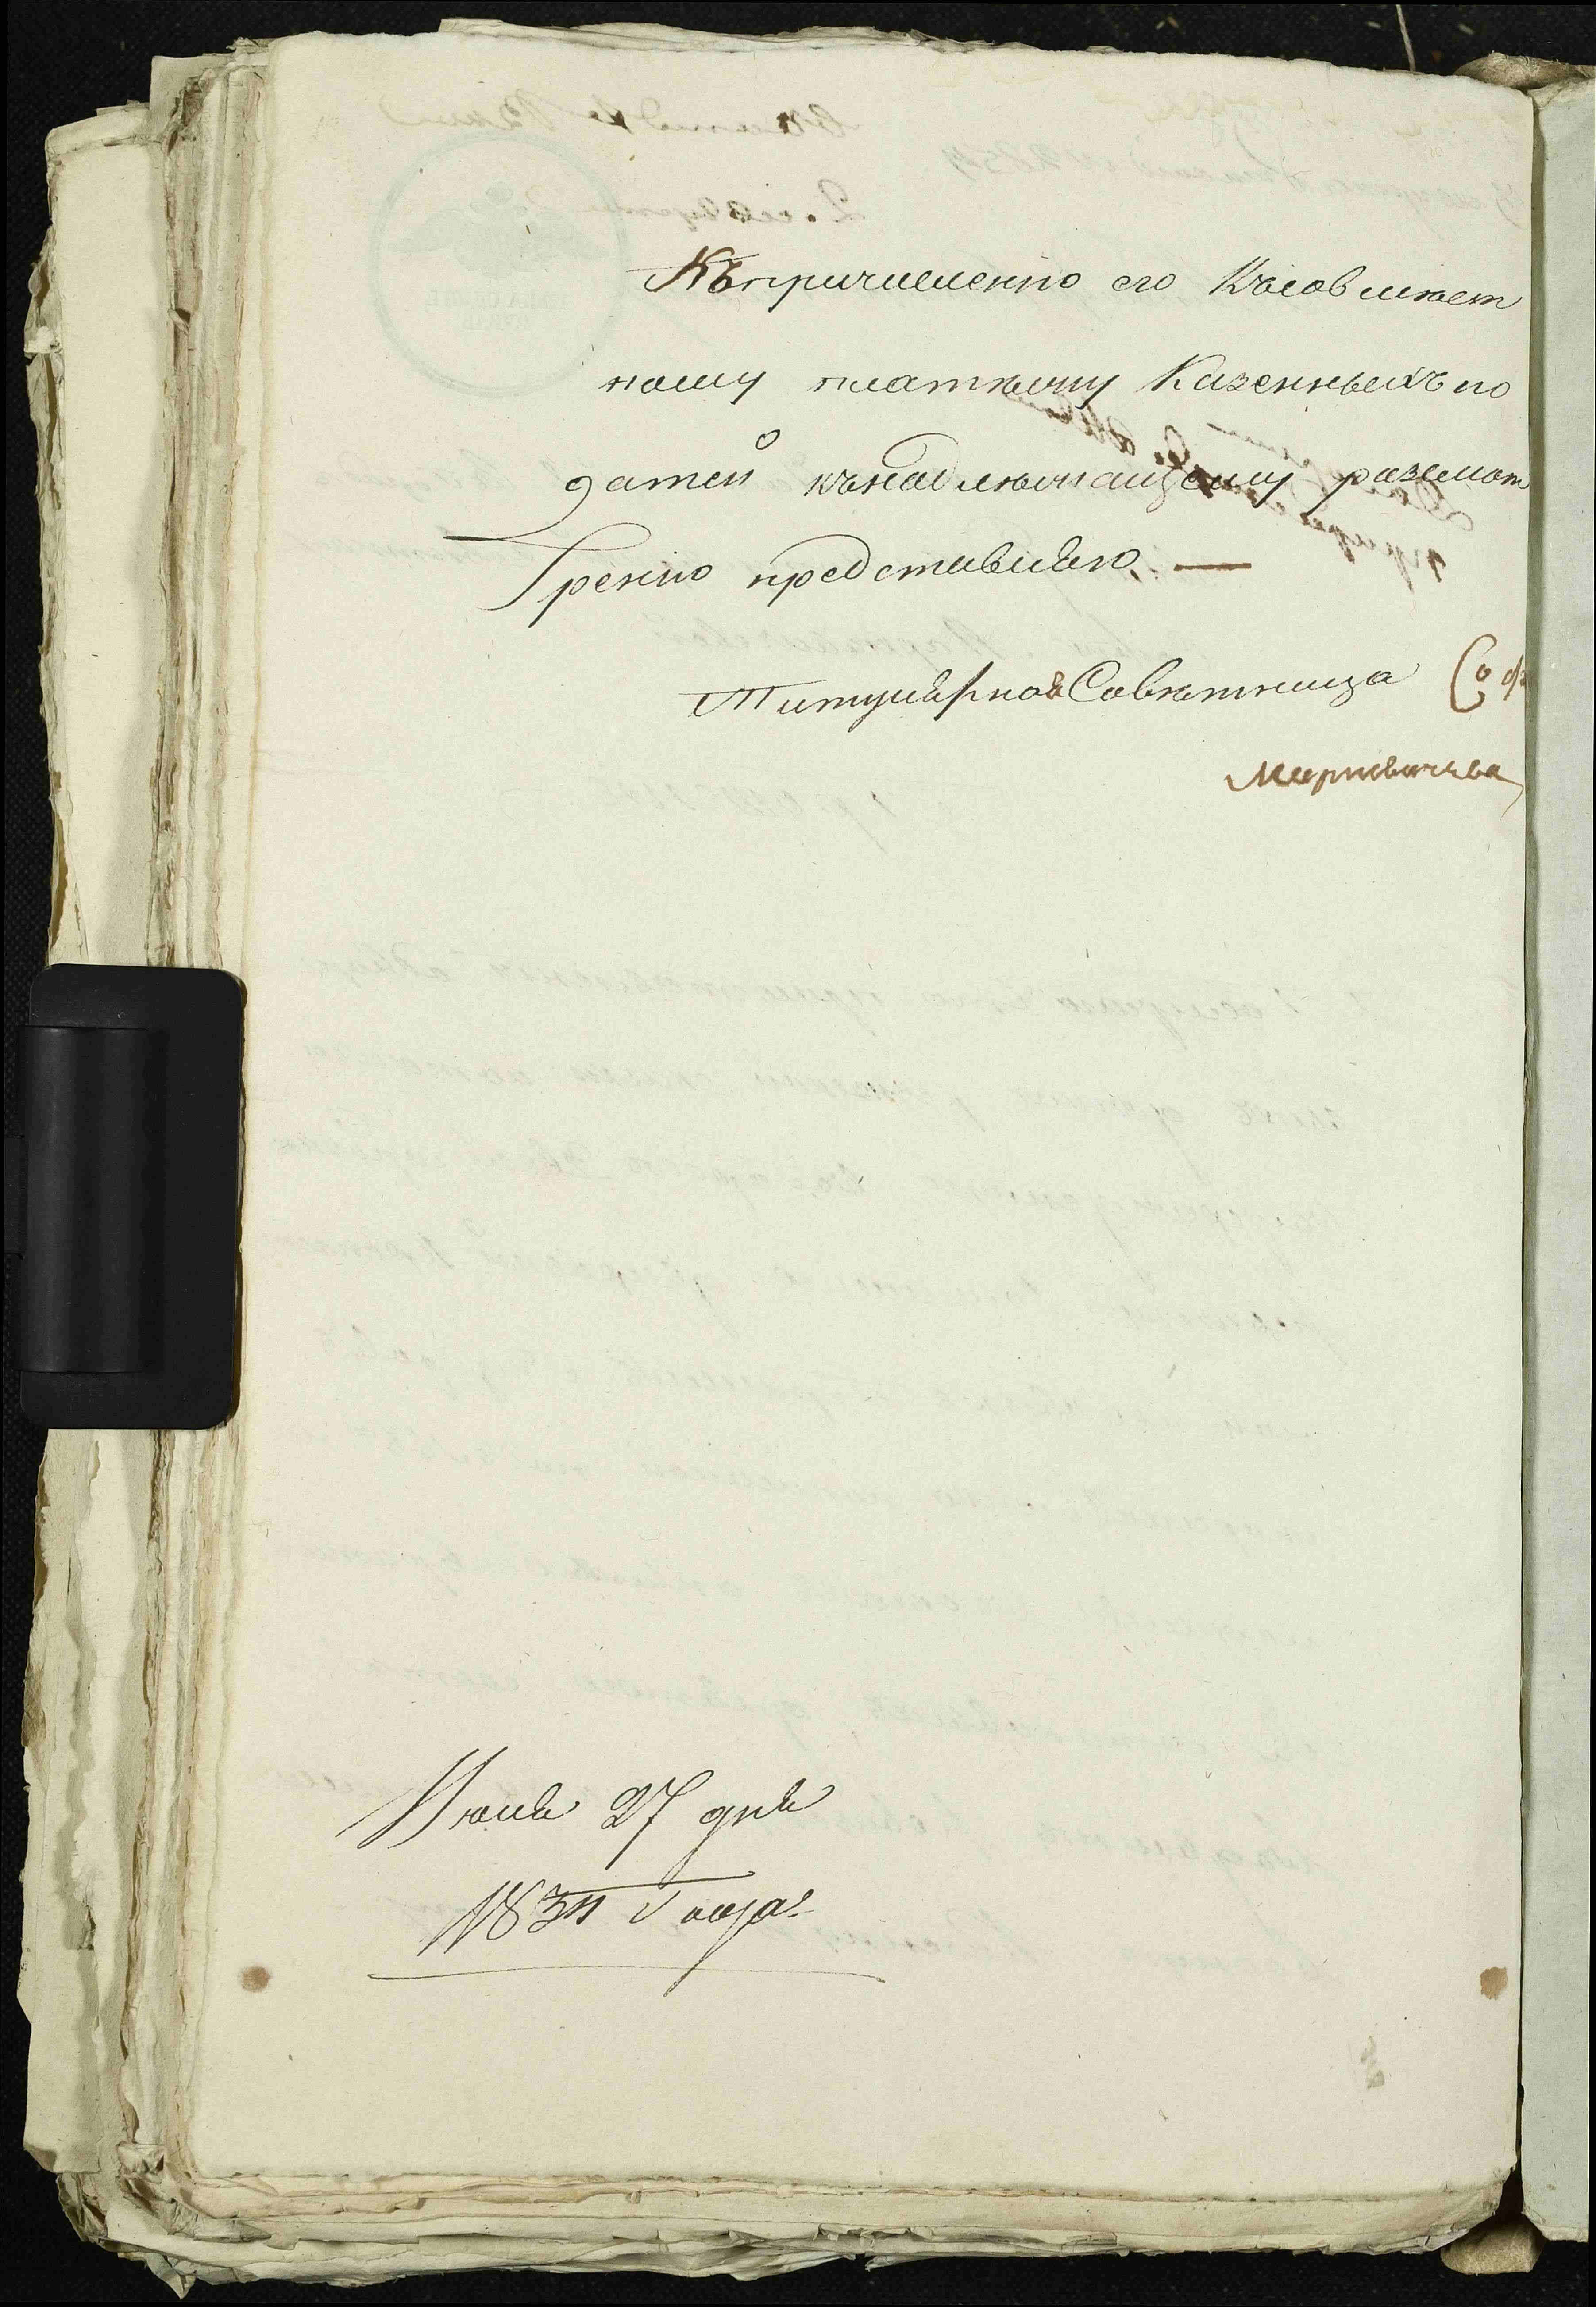 Къпричислению его Късовмѣст
ному платежу Казенныхъ по
датей къ надлежащему разсмот
рению представляю —
Титулярная Совѣтница Соф
Маркевичева
Июля 27 дня
1834 года